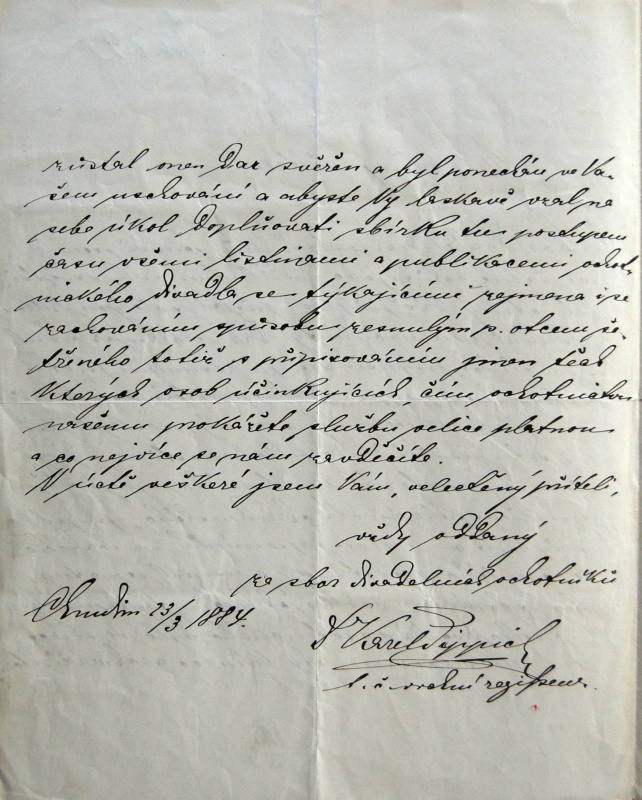 zůstal onen Dar svěřen a byl ponechán ve Va-
šem uschování a abyste Vy laskavě vzal na
sebe úkol doplňovati sbírku tu postupem
času všemi listinami a publikacemi ochot-
nického divadla se týkajícími zejmena i se
zachováním způsobu zesnulým p. otcem še-
třeného totiž s připisováním jmen těch
kterých osob účinkujících, čím ochotnictvu
našemu prokážete službu velice platnou
a co nejvíce se nám zavděčíte.
V úctě veškeré jsem Vám, velectěný příteli,
vždy oddaný
za sbor divadelních ochotníků
Chrudim 23/3 1884.
Karel Pippich
t. č. vrchní regisseur.